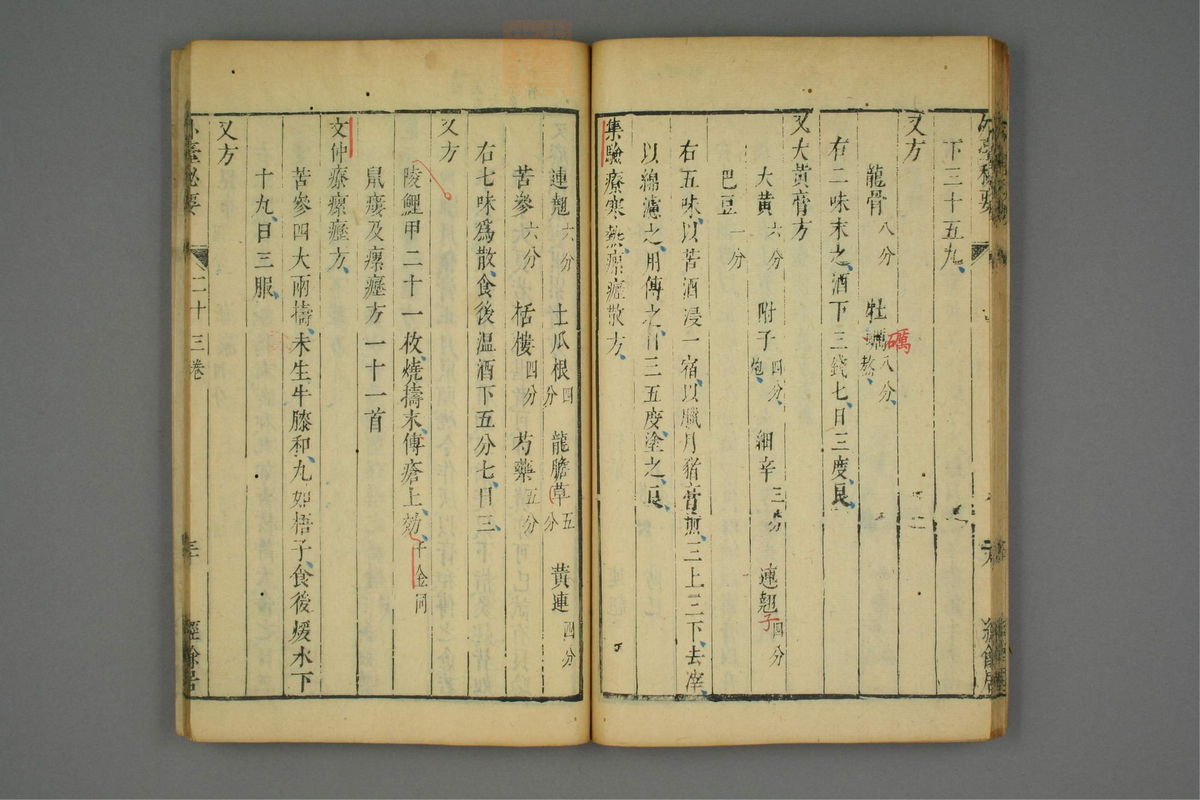 下三十五丸
又方
龍骨八分 牡蠣八分熬
礪
右二味末之酒下三錢七日三度良
又大黃膏方
大黃六分 附子四分炮 細辛三分 連翹四分
子
巴豆一分
右五味以苦酒浸一宿以臘月猪膏煎三上三下去滓
以綿濾之用傅之日三五度塗之良
集驗療寒熱瘰癧散方
連翹六分 土瓜根四分 龍膽草五分 黃連四分
苦參六分 栝樓四分 芍藥五分
右七味爲散食後温酒下五分七日三
又方
陵鯉甲二十一枚燒擣末傅瘡上効千金同
鼠瘻及瘰癧方一十一首
文仲療瘰癧方
苦參四大兩擣末生牛膝和丸如梧子食後煖水下
十丸日三服
又方
外臺秘要 二十三卷 經餘居